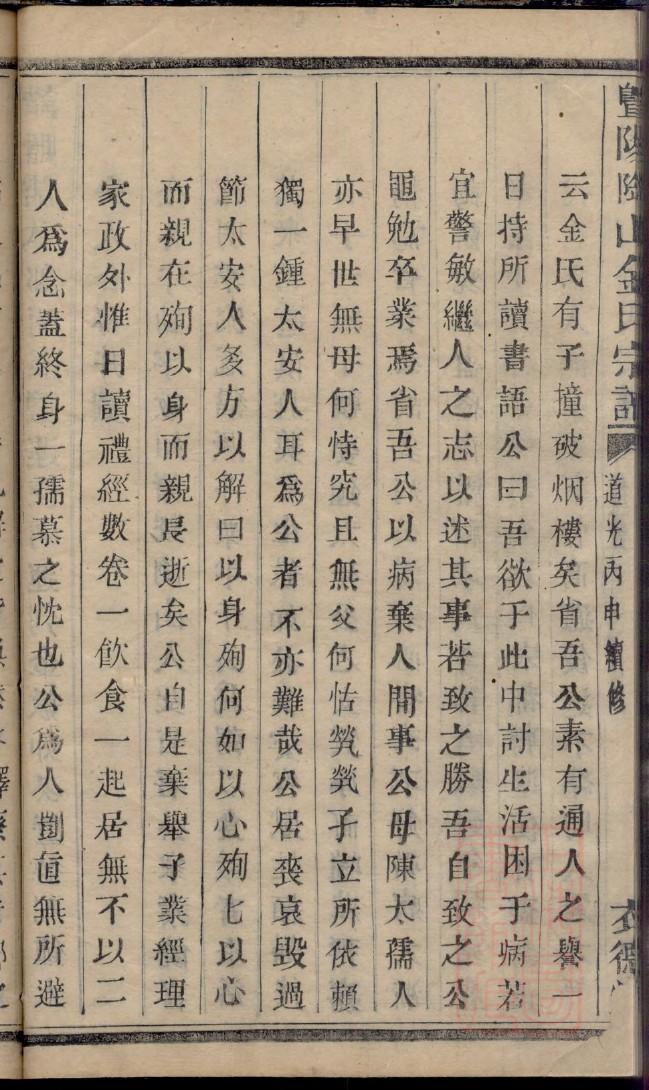 暨陽陰山金氏宗譜
道光丙申續修
云金氏有子撞破烟樓矣省吾公素有通人之譽一
日持所讀書語公曰吾欲于此中討生活困于病若
宜警敏繼人之志以述其事若致之勝吾自致之公
黽勉卒業焉省吾公以病棄人間事公母陳太孺人
亦早世無母何恃究且無父何怙煢煢孑立所依賴
獨一鍾太安人耳爲公者不亦難哉公居喪哀毀過
節太安人多方以解曰以身殉何如以心殉七以心
而親在殉以身而親長逝矣公自是棄舉子業經理
家政外惟日讀禮經數卷一飲食一起居無不以二
人爲念蓋終身一孺慕之忱也公爲人剴直無所避